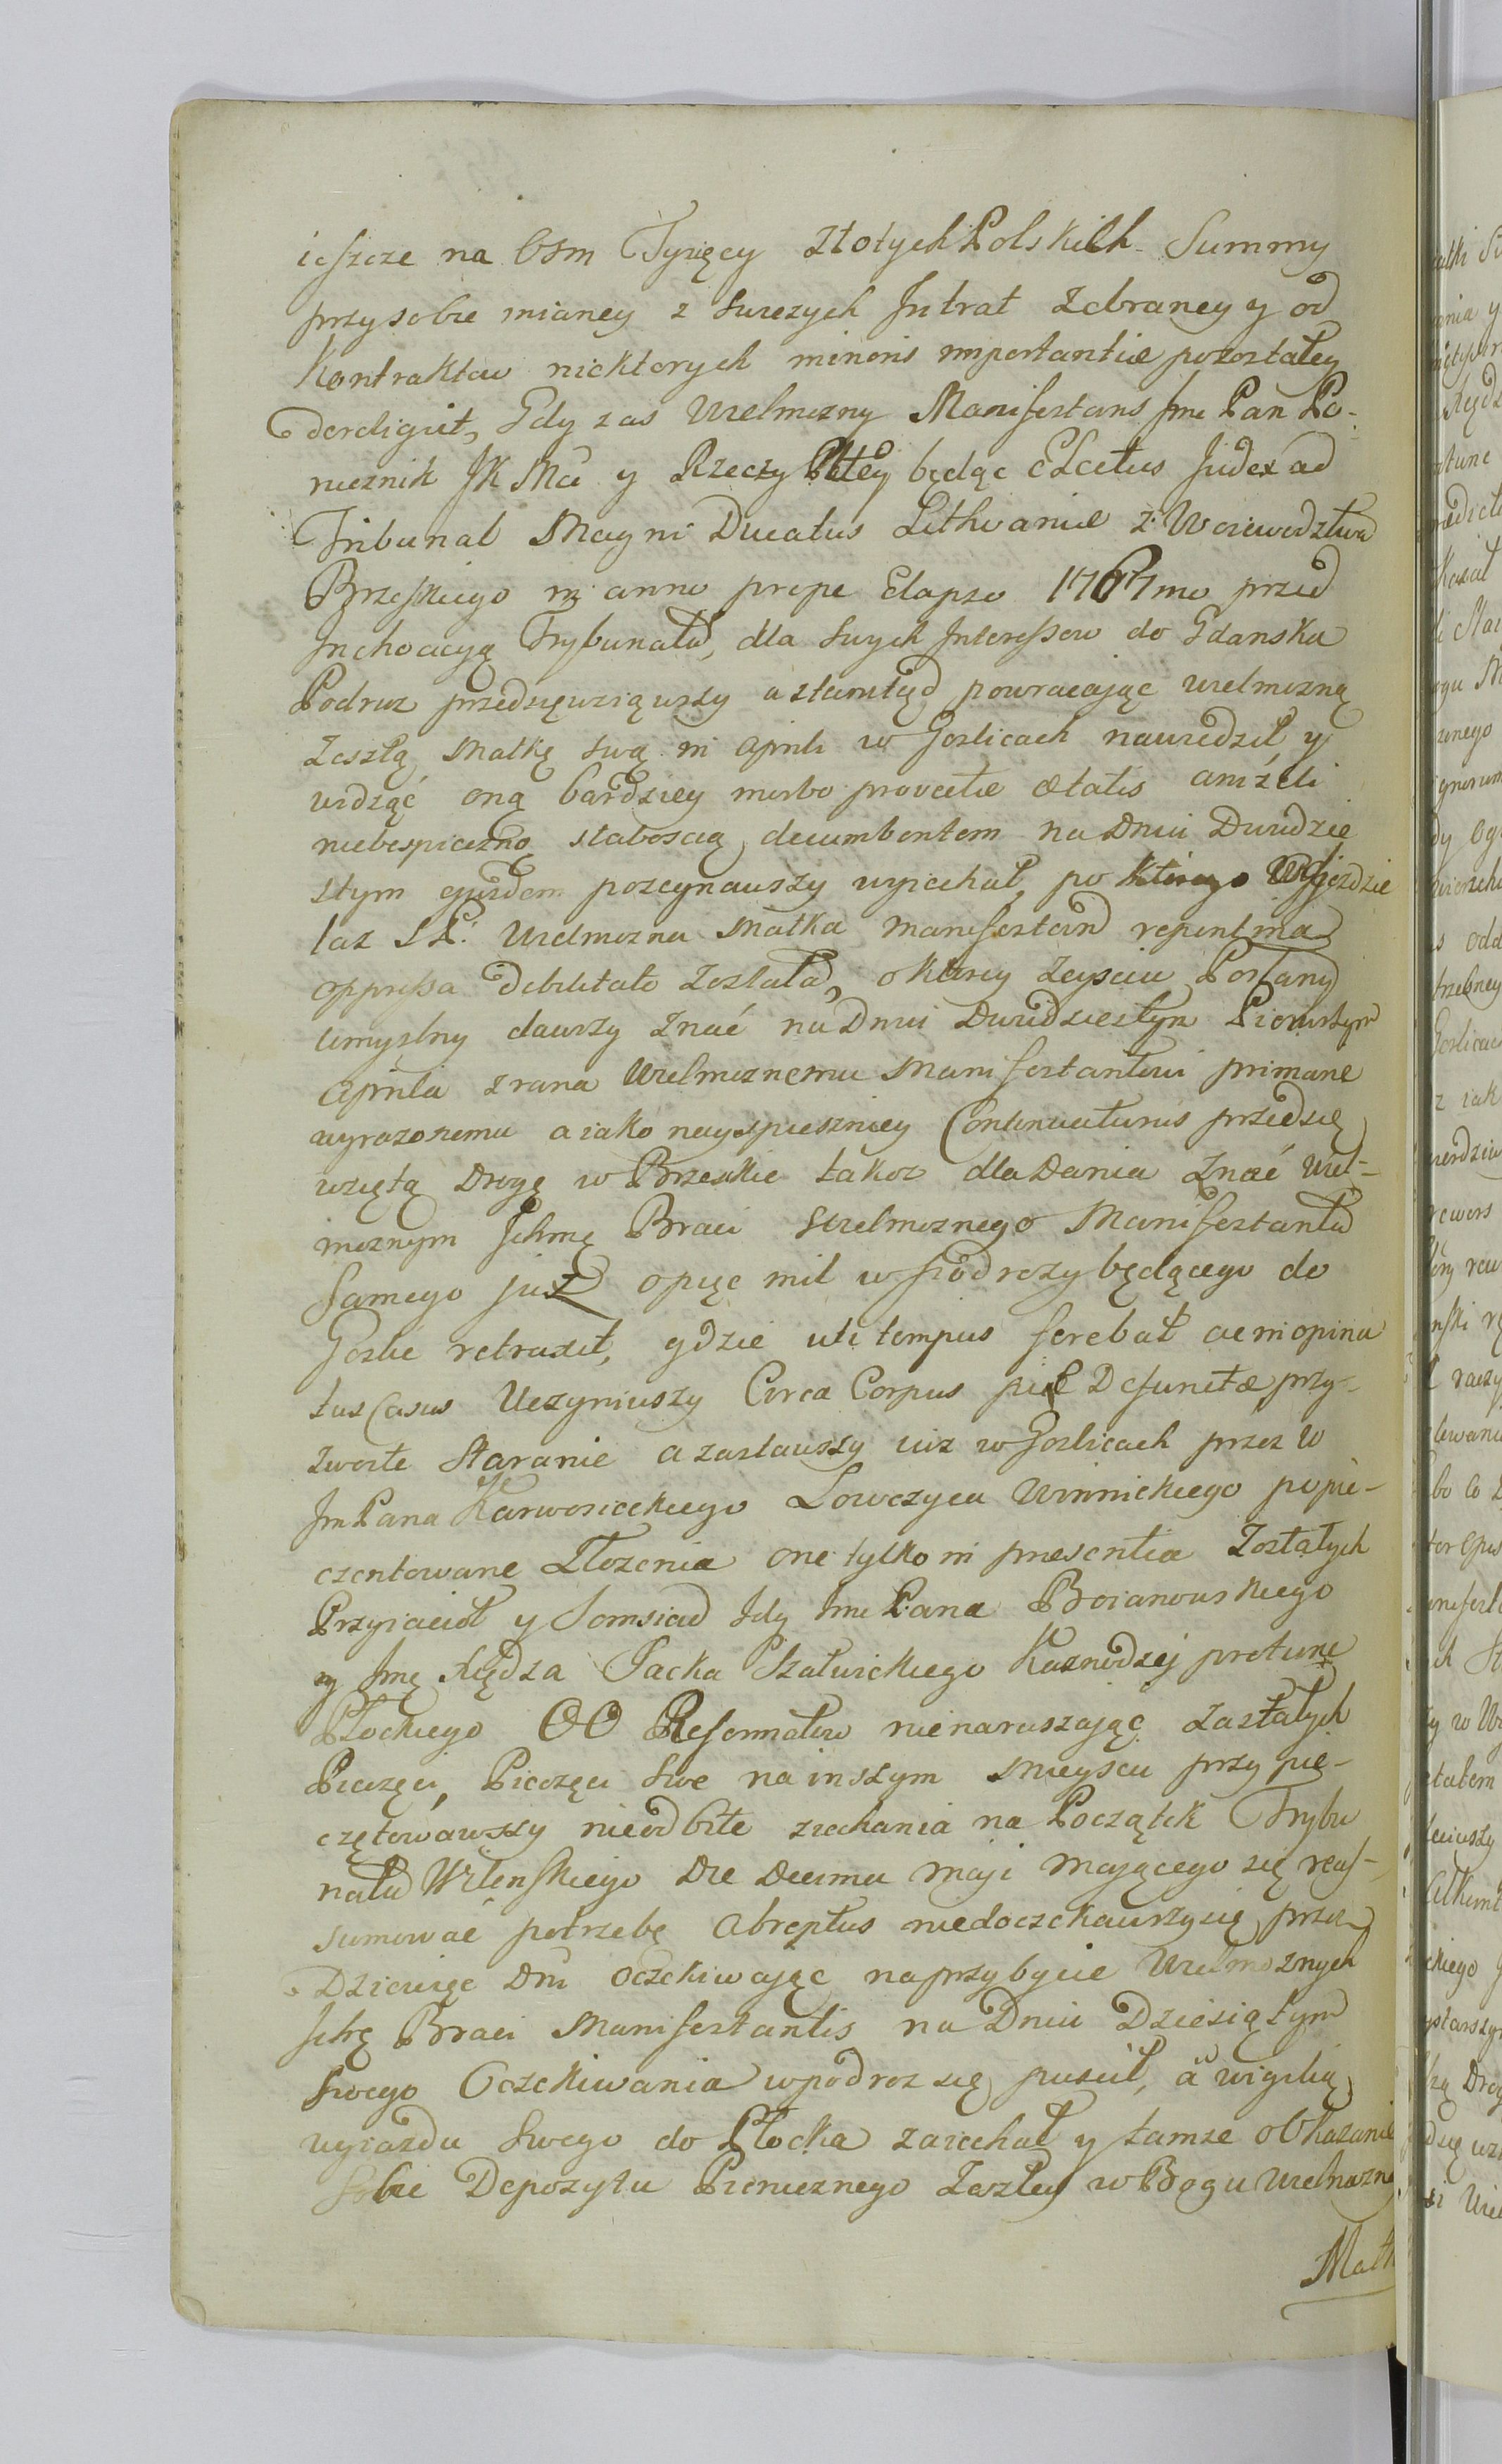 ieszcze na Osm Tysięcy Złotych Polskich Summy
przy sobie mianey z swezych Intrat zebraney y od
Kontraktow niektorych minoris importantiæ pozostałey
derdigit, Gdy zas Wielmozny Manifestans Jmc Pan Po-
rucznik JK Mci y Rzeczy Pltey będąc Electus Judex ad
Tribunal Magni Ducatus Lithvaniæ z Woiewodztwa
Brzeskiego in anno prope Elapso 1767mo przed
Inchoacyą Trybunału, dla swych Interessow do Gdanska
Podruz przedsięwziąwszy a ztamtąd powracaiąc wielmozną
Zeszłą Matkę swą in Aprili w Goslicach nawiedził y
widząc oną bardziey morbo provectæ ætatis aniżeli
niebespieczną słaboscią decumbentem na Dniu Dwudzie
stym ejusdem pozegnawszy wyiechał, po którego Wyjezdzie
taz SP. Wielmozna Matka Manifestand repentina
oppressa debilitate Została, o ktorey Zeysciu Posłany
umyslny dawszy Znać na Dniu Dwudziestym Pierwszym
Aprila z rana Wielmoznemu Manifestantowi primane
wyrazonemu a iako nayspieszniey Continuaturus przedsię
wziętą Drogę w Brzeskie takoz dla Dania Znać Wiel-
moznym Ichmę Braci Wielmoznego Manifestanta
Samego juz o pięc mil w podrozy będącego do
Goslic retraxit, gdzie uti tempus ferebat ac inopina
tus Casus Uczyniwszy Circa Corpus piæ Defunctæ przy-
zwoite Staranie a zastawszy iuz w Goslicach przez W
Jm Pana Karwosieckiego Lowczyca Winnickiego popie-
czentowane Złozenia one tylko in præsentia Zostałych
Przyiacioł y Somsiad Idy Jmc Pana Boianowskiego
y Jmę Xiędza Jacka Szałwickiego Kaznodzej protunc
Płockiego OO Reformatow nienaruszając zastałych
Pieczęci, Pieczęci swe na inszym mieyscu przy pie-
czętowawszy nieodbite ziechania na Początek Trybu
nału Wilenskiego Die Decima Maji mającego się reas-
sumować potrzebę Abreptus niedoczekawszy się przez
Dziewięc Dni Oczekiwając na przybycie Wielmoznych
Ichę Braci Manifestantis na Dniu Dziesiątym
swego Oczekiwania w podroz się puscił, a wigilią
wyiazdu swego do Płocka zaiechał y tamze o Okazanie
Sobie Depozytu Pienieznego Zeszłey w Bogu Wielmozne
Matk